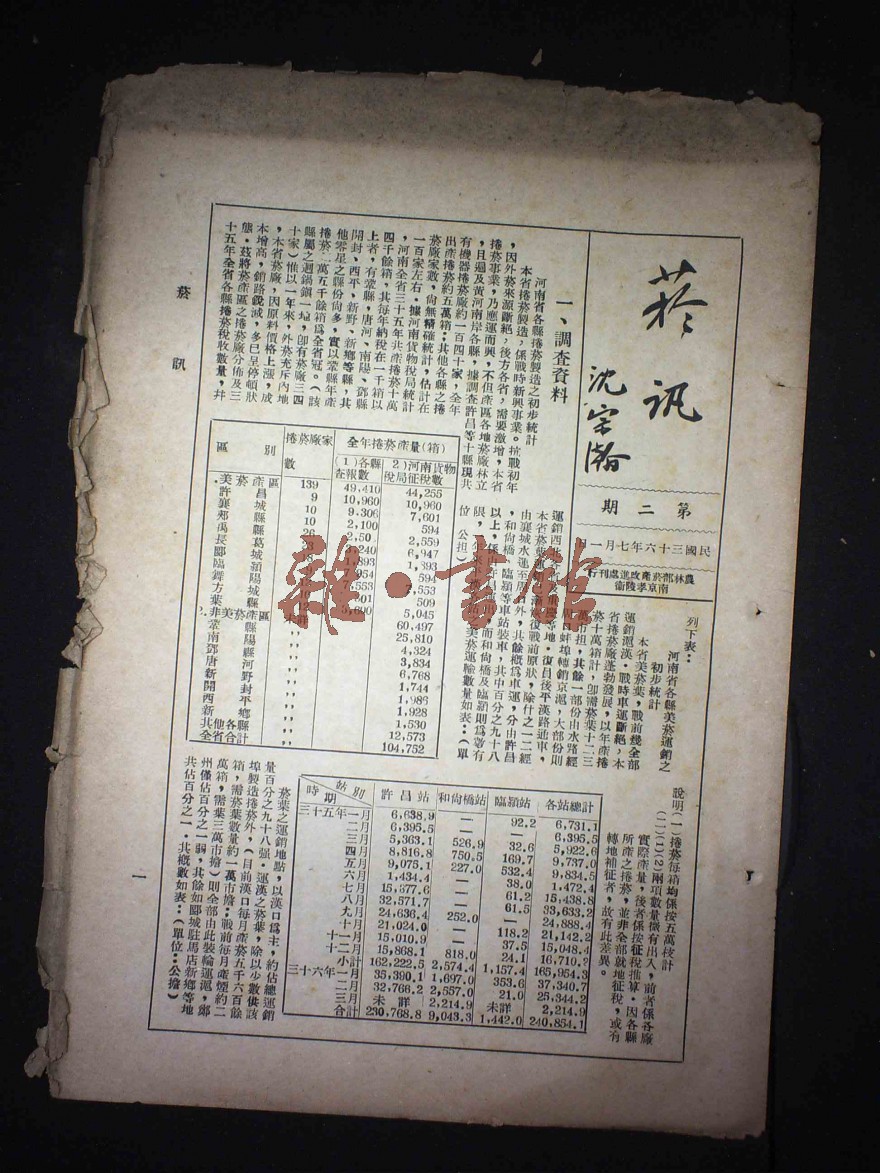 菸訊
沈宗瀚
第二期
民國三十六年七月一日
農林部菸產改進處刊行
南京孝陵衞
一、調查資料
河南省各縣捲菸製造之初步統計
本省捲菸製造,係戰時新興事業。抗戰初年
,因外菸來源斷絕,後方各省,需要激增,本省
捲菸事業,乃應運而興,不但產區各地菸廠林立
,且遍及黃河南岸各縣,據調查許昌等十縣現共
有機器捲菸廠約一百四十家,全年
出產捲菸約五萬箱;其他各縣之捲
菸廠家數,尙無精確統計,估計在
一百家左右。據河南貨物稅局統計
,河南全省三十五年共產捲菸十萬
四千餘箱,其每年納稅在一千箱以
上者,有鞏縣,唐河、南陽、鄧縣
開封、西平、新野、新鄉等縣,其
他零星之縣份尙多,實以鞏縣年產
捲菸二萬五千餘箱爲全省冠。(該
縣屬之迴鍋鎭一埠,卽有菸廠三四
十家)惟以一年來,外菸充斥內地
,本省菸廠,因原料價格上漲,成
本增高,銷路銳減,多已呈停頓狀
態。茲將菸產區之捲菸廠分佈及三
十五年全省各縣捲菸稅收數量,幷
列下表:
區別
捲菸廠家數
全年捲菸產量(箱)
(1)各縣查報數
(2)河南貨物稅局征稅數
美菸產區 139 49,410 44,255
許昌縣 9 10,960 10,960
襄城縣 10 9,306 7,601
郟縣 10 2,100 594
禹縣
長葛
鄢城
臨潁
舞陽
方城
葉縣
非美菸產區
鞏縣 25,810
南陽 4,324
鄧縣 3,834
唐河 6,768
新野 1,744
開封 1,986
西平 1,928
新鄉 1,530
其他各縣 12,573
全省合計 104,752
說明(一)捲菸每箱均係按五萬枝計
(二)(1)(2)兩項數量微有出入,前者係各廠
實際產量,後者係按征稅推算。因各縣
所產之捲菸,並非全部就地征稅,或有
轉地補征者,故有此差異。
河南省各縣美菸運銷之
初步統計
本省美菸葉,戰前幾全部
運銷滬漢。戰時車運斷絕,本
省捲菸廠蓬勃發展,以年產捲
菸十萬箱計,卽需菸葉十二三
萬市担,其餘一部份由水路經
周口蚌埠轉銷京滬,大部份則
運銷西北
等地。復員後平漢路通車,
本省菸葉運銷
復戰前原狀,除什之一二經
由襄城水運至
外,其餘概爲車運,分由許昌
,和尙橋、臨潁等車站裝車,其中百分之九十八
以上,係由許昌
,而和尙橋及臨潁則爲數有
限,
美菸運輸數量如表:(單
位 公担)
時期 站別 許昌站 和尙橋站 臨潁站 各站總計
三十五年一月 6,638.9 — 92.2 6,731.1
二月 6,395.5 — — 6,395.5
三月 5,363.1 526.9 32.6 5,922.6
四月 8,816.8 750.5 169.7 9,737.0
五月 9,075.1 227.0 532.4 9,834.5
六月 1,434.4 — 38.0 1,472.4
七月 15,377.6 — 61.2 15,438.8
八月 32,571.7 — 61.5 33,633.2
九月 24,636.4 252.0 — 24,888.4
十月 21,024.0 — 118.2 21,142.2
十一月 15,010.9 — 37.5 15,048.4
十二月 15,868.1 818.0 24.1 16,710.2
小計 162,222.5 2,574.4 1,157.4 165,954.3
三十六年一月 35,390.1 1,697.0 353.6 37,340.7
二月 32,766.2 2,557.0 21.0 25,344.2
三月 未詳 2,214.9 未詳 2,214.9
合計 230,768.8 9,043.3 1,442.0 240,854.1
菸葉之運銷地點,以漢口爲主,約佔總運銷
量百分之九十八强。運漢之菸葉,除以少數供該
埠製造捲菸外,(目前漢口每月產菸五千六百餘
箱,需菸葉數量約一萬市擔;戰前每月產煙約二
萬箱,需葉三萬市擔)則全部由此裝輪運滬,鄭
州僅佔百分之一弱,其餘如郾城駐馬店新鄉等地
共佔百分之一。其概數如表:(單位:公擔)
菸訊
一
雜·書館